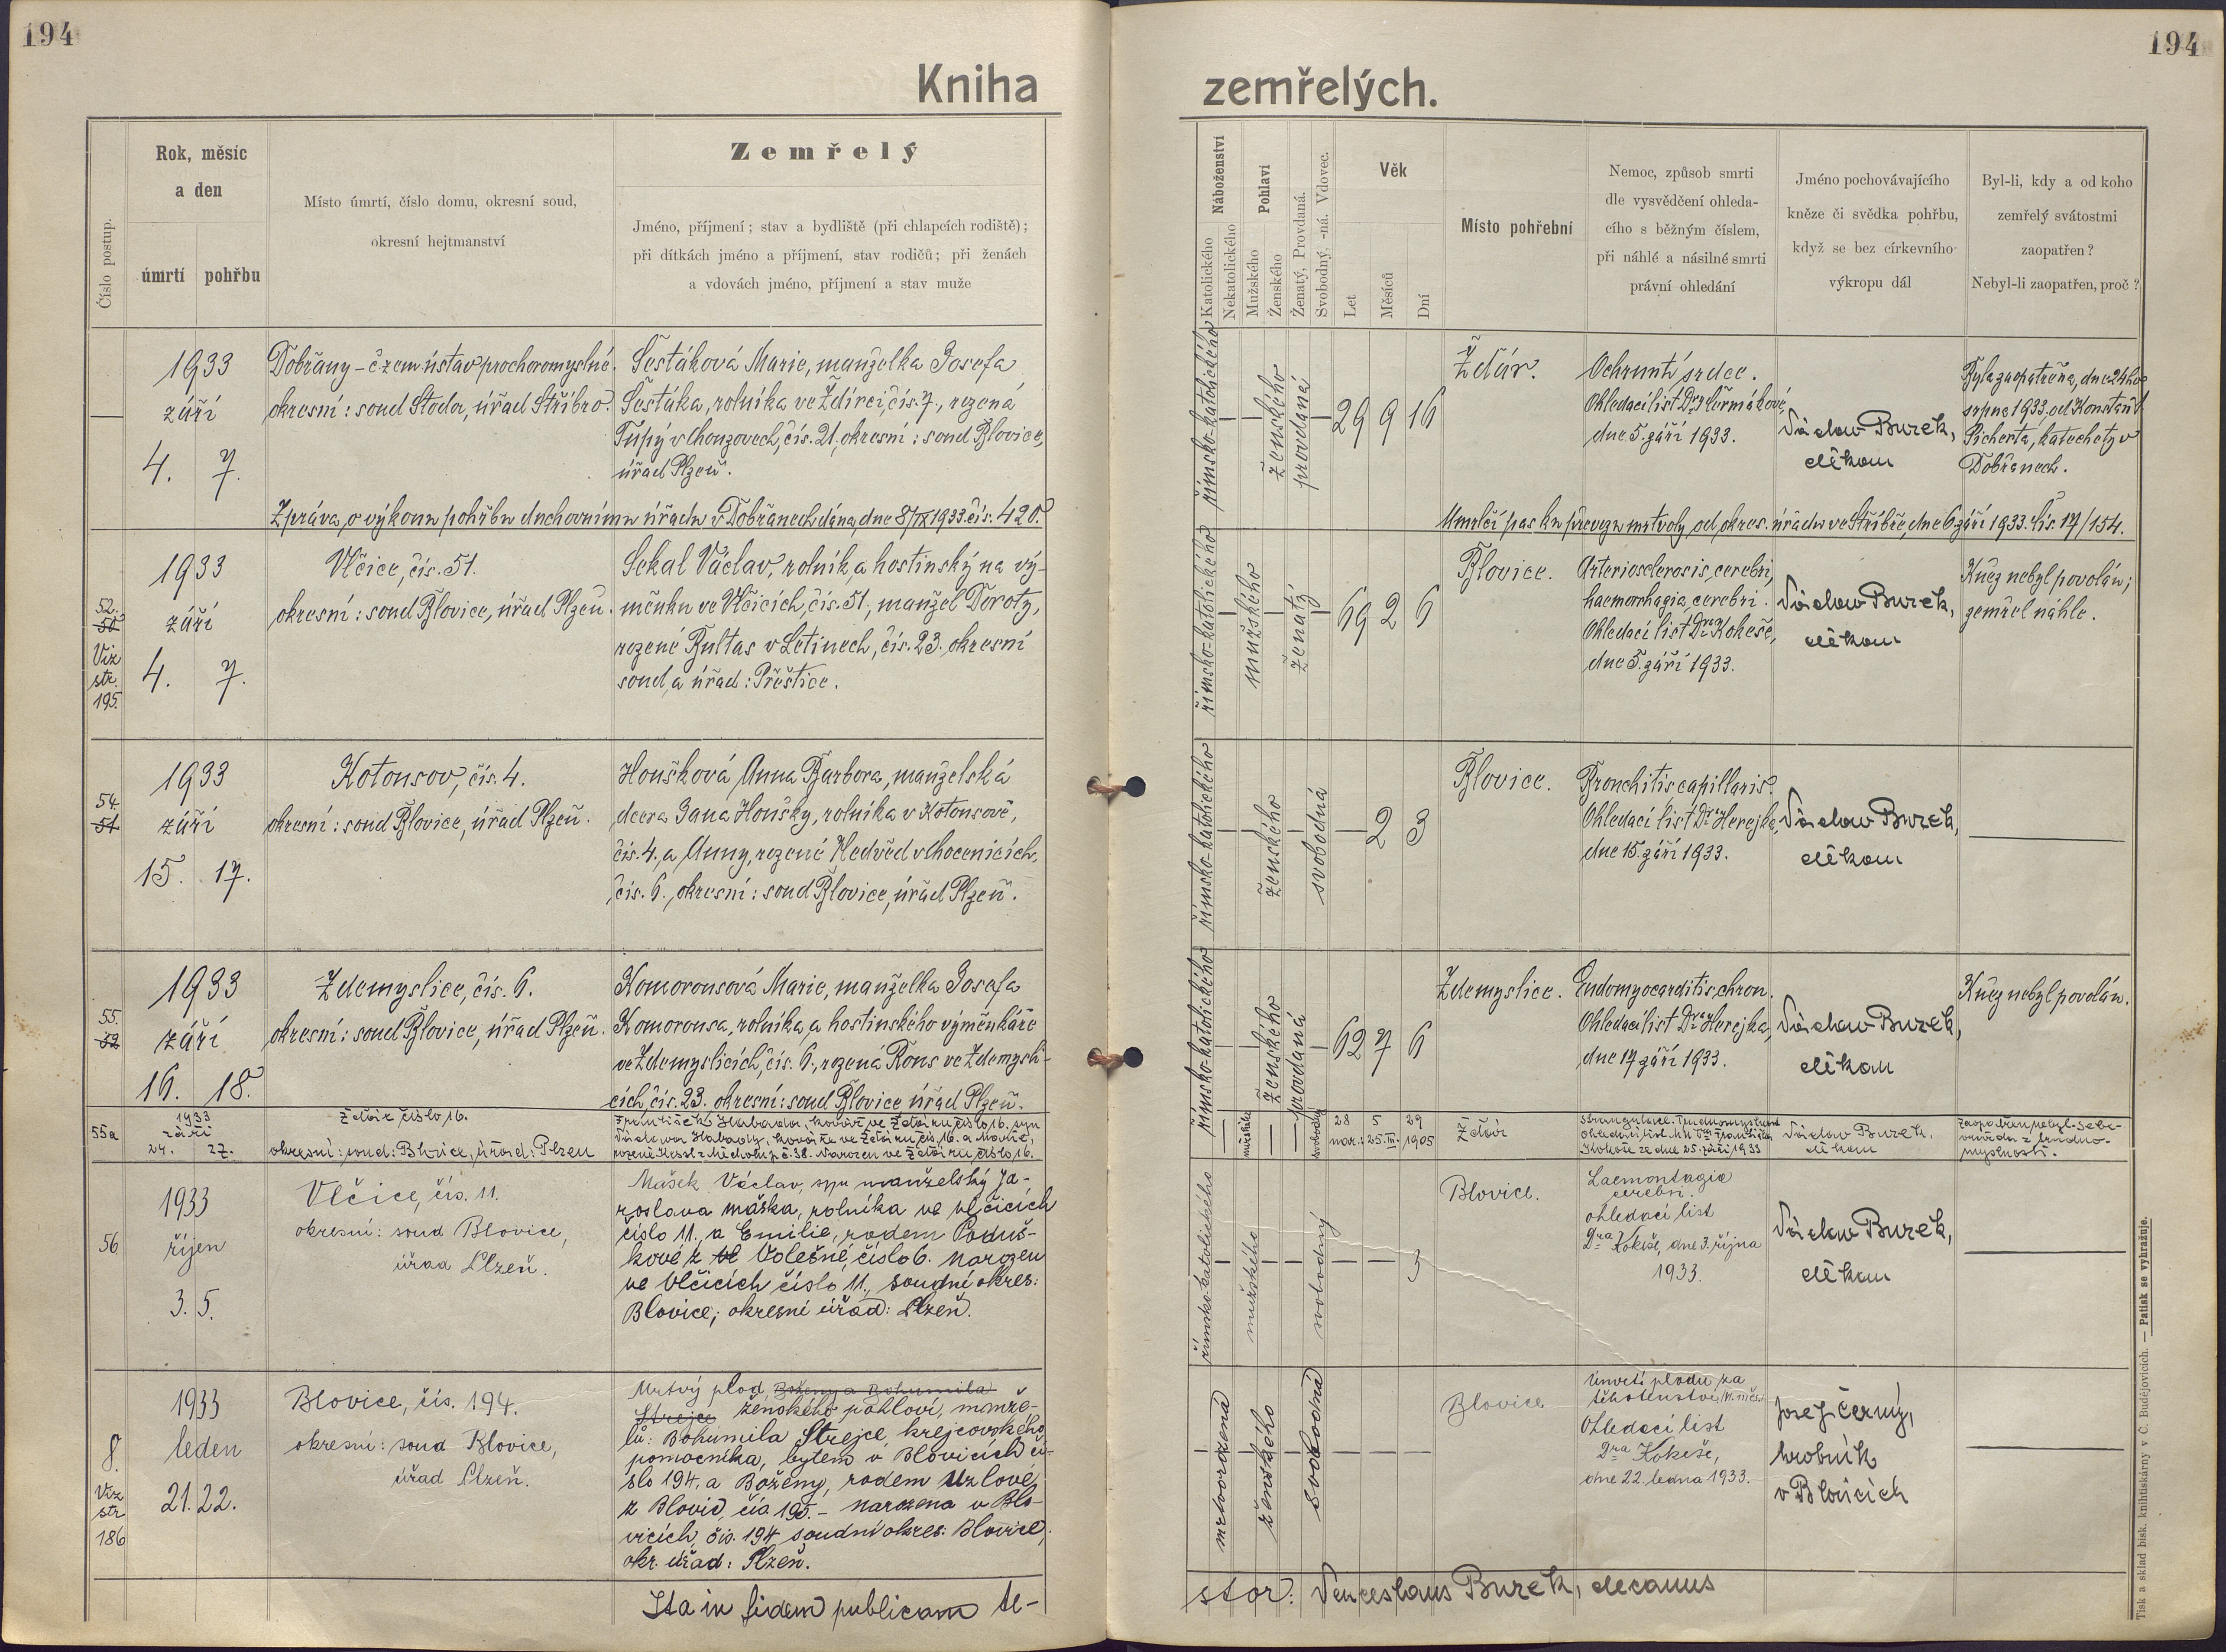 194
194
Kniha
zemřelých.
Číslo postup.
Rok, měsíc
a den
úmrtí
pohřbu
Místo úmrtí, číslo domu, okresní soud,
okresní hejtmanství
Zemřelý
Jméno, příjmení; stav a bydliště (při chlapcích rodiště);
při dítkách jméno a příjmení, stav rodičů; při ženách
a vdovách jméno, příjmení a stav muže
Náboženství
Katolického
Nekatolického
Pohlaví
Mužského
Ženského
Ženatý, Provdaná.
Svobodný, -ná. Vdovec.
Věk
Let
Měsíců
Dní
Místo pohřební
Nemoc, způsob smrti
dle vysvědčení ohleda-
cího s běžným číslem,
při náhlé a násilné smrti
právní ohledání
Jméno pochovávajícího
kněze či svědka pohřbu,
když se bez církevního
výkropu dál
Byl-li, kdy a od koho
zemřelý svátostmi
zaopatřen?
Nebyl-li zaopatřen, proč?
—
1933
září
4. 7.
Dobřany – č. zem. ústav pro choromyslné.
okresní: soud Stoda, úřad Stříbro.
Šestáková Marie, manželka Josefa
Šestáka, rolníka ve Ždírci, čís. 7., rozená
Tupý v Chouzovech, čís. 21, okresní: soud Blovice,
úřad Plzeň.
Zpráva o výkonu pohřbu duchovnímu úřadu v Dobřanech dána, dne 8/IX 1933. čís. 420.
římsko-katolického
ženského
provdaná
29 9 16
Ždár.
Ochrnutí srdce.
Ohledací list Dra Čermákové,
dne 5. září 1933.
Václav Burek,
děkan
Byla zaopatřena, dne 24ho
srpna 1933, od Konstant.
Sicherta, katechety v
Dobřanech.
Umrlčí pas ku převozu mrtvoly od okres. úřadu ve Stříbře, dne 6. září 1933. čís. 17/154.
52.
50
Viz
str.
195.
1933
září
4. 7.
Vlčice, čís. 51.
okresní: soud Blovice, úřad Plzeň.
Sekal Václav, rolník a hostinský na vý-
měnku ve Vlčicích, čís. 51, manžel Doroty,
rozené Bultas v Letinech, čís. 23. okresní
soud a úřad: Přeštice.
římsko-katolického
mužského
ženatý
69 2 6
Blovice.
Arteriosclerosis cerebri,
haemorrhagia cerebri.
Ohledací list Dra Kokeše,
dne 5. září 1933.
Václav Burek,
děkan
Kněz nebyl povolán;
zemřel náhle.
54.
51
1933
září
15. 17.
Kotousov, čís. 4.
okresní: soud Blovice, úřad Plzeň.
Houšková Anna Barbora, manželská
dcera Jana Houšky, rolníka v Kotousově,
čís. 4., a Anny, rozené Nedvěd v Chocenicích,
čís. 6., okresní: soud Blovice, úřad Plzeň.
římsko-katolického
ženského
svobodná
— 2 3
Blovice.
Bronchitis capillaris.
Ohledací list Dra Herejka,
dne 15. září 1933.
Václav Burek,
děkan
55.
52
1933
září
16. 18.
Zdemyslice, čís. 6.
okresní: soud Blovice, úřad Plzeň.
Komorousová Marie, manželka Josefa
Komorousa, rolníka a hostinského výměnkáře
ve Zdemyslicích, čís. 6., rozená Rous ve Zdemysli-
cích, čís. 23. okresní: soud Blovice úřad Plzeň.
římsko-katolického
ženského
provdaná
62 7 6
Zdemyslice.
Endomyocarditis chron.
Ohledací list Dra Herejka,
dne 17. září 1933.
Václav Burek,
děkan
Kněz nebyl povolán.
55a
1933
září
24. 27.
Ždár číslo 16.
okresní: soud: Blovice, úřad: Plzeň
František Habada, kovář ve Ždáru, číslo 16, syn
Václava Habady, kováře ve Ždáru čís. 16. a Marie,
rozené Kessl z Míchova č. 38. Narozen ve Ždáru, číslo 16.
mužského
svobodný
28 5 29
nar.: 25. III. 1905
Ždár
Ohledací list Dra Františka
Kokeše ze dne 25. září 1933
Václav Burek,
děkan
Zaopatřen nebyl. Sebe-
vražda z trudno-
myslnosti.
56
1933
říjen
3. 5.
Vlčice, čís. 11.
okresní: soud Blovice,
úřad Plzeň.
Mašek Václav, syn manželský Ja-
roslava Maška, rolníka ve Vlčicích
číslo 11., a Emilie, rodem Poduš-
kové z Volešné, číslo 6. Narozen
ve Vlčicích číslo 11., soudní okres:
Blovice; okresní úřad: Plzeň.
římsko katolického
mužského
svobodný
— — 3
Blovice.
Laemontagia
cerebri.
ohledací list
Dra Kokeše, dne 3. října
1933.
Václav Burek,
děkan
8.
Viz
str.
186
1933
leden
21. 22.
Blovice, čís. 194.
okresní: soud Blovice,
úřad Plzeň.
Mrtvý plod, Boženy a Bohumila
Strejce ženského pohlaví, manže-
lů: Bohumila Strejce, krejčovského
pomocníka, bytem v Blovicích čí-
slo 194, a Boženy, rodem Uzlové,
z Blovic, čís. 195. – narozena v Blo-
vicích, čís. 194 soudní okres: Blovice,
okr. úřad: Plzeň.
mrtvorozená
ženského
svobodná
Blovice
Úmrtí plodu za
těhotenství
Ohledací list
Dra Kokeše,
dne 22. ledna 1933.
Josef Černý,
hrobník
v Blovicích
Ita in fidem publicam te-
stor: Venceslaus Burek, decanus
Tisk a sklad bisk. knihtiskárny v Č. Budějovicích. — Patisk se vyhražuje.